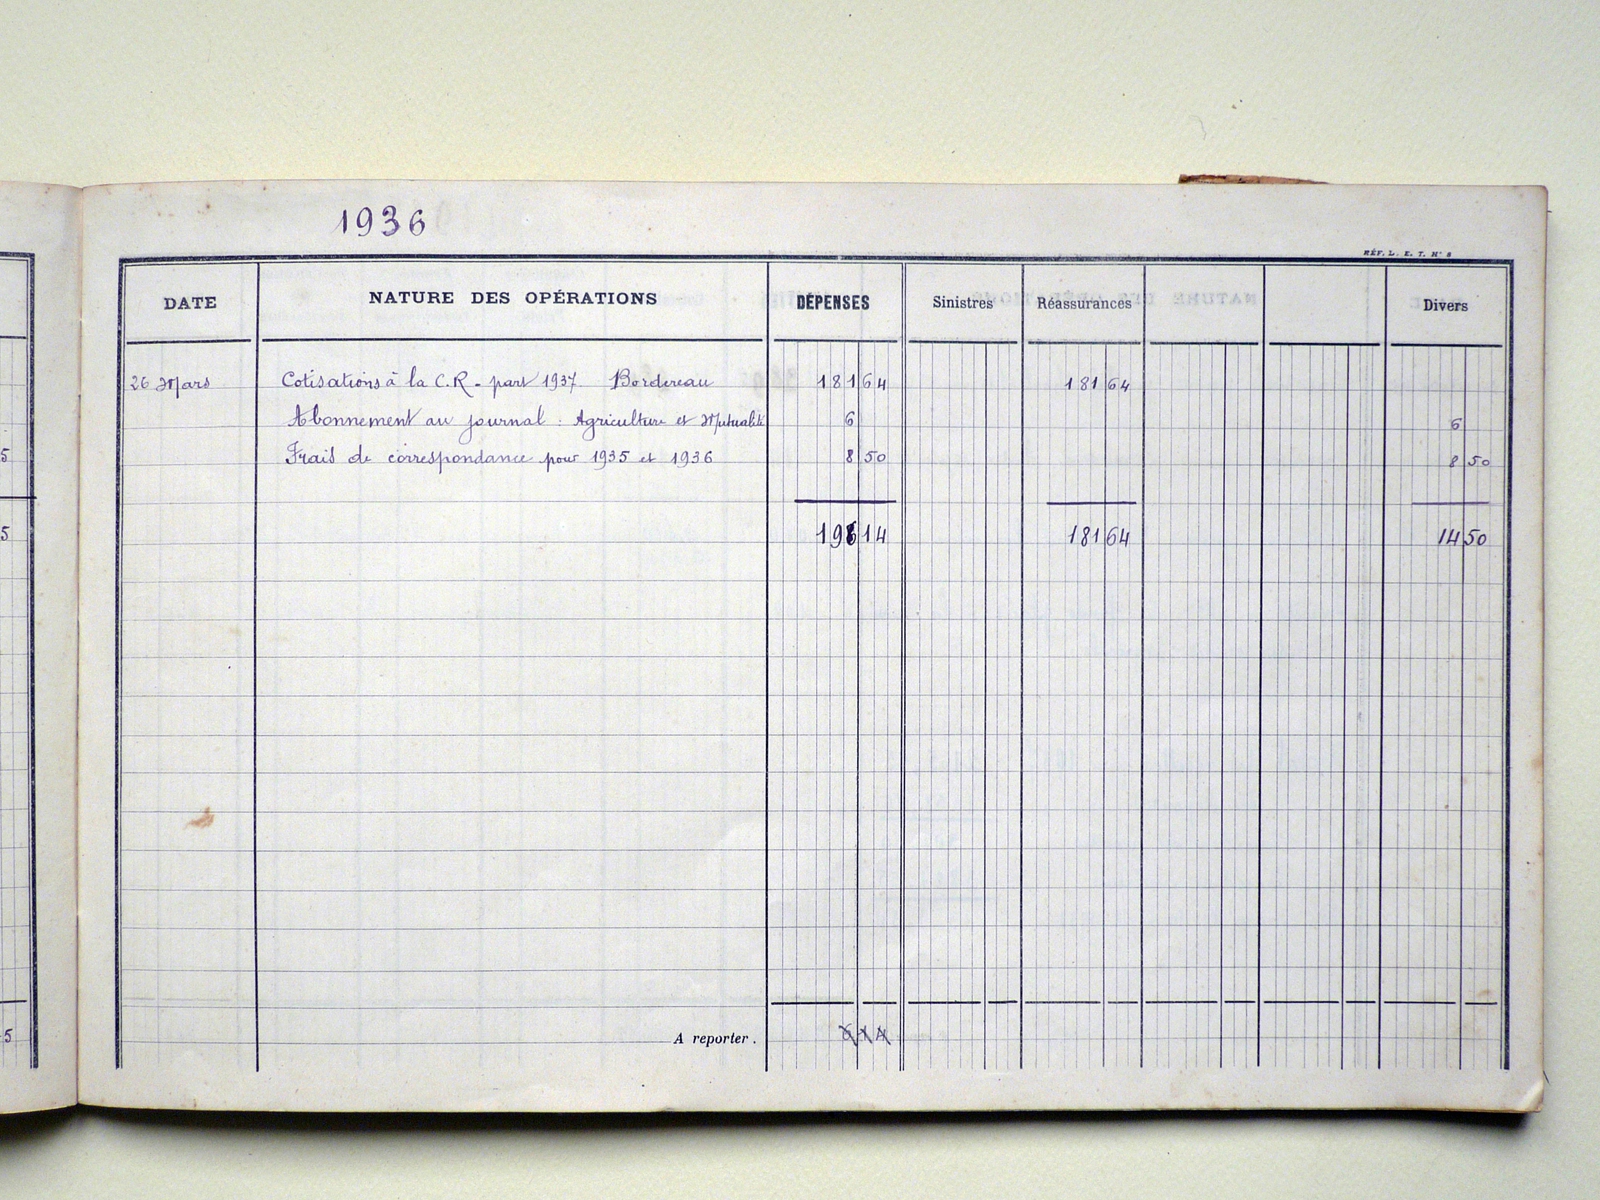 1936
RÉF. L. E. T. N° 8
DATE NATURE DES OPÉRATIONS DÉPENSES Sinistres Réassurances Divers
26 Mars Cotisations à la C.R - part 1937 Bordereau 181 64 181 64
Abonnement au journal : Agriculture et Mutualité 6 6
5
Frais de correspondance pour 1935 et 1936 8 50 8 50
5 196 14 181 64 14 50
5 A reporter.